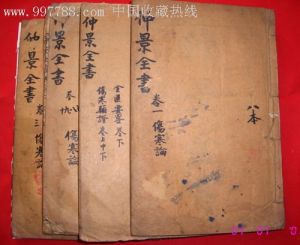 www.997788.com 中国收藏热线
仲景全書
卷三傷寒論
景全書
傷寒論
仲景全書
金匱要畧卷下
傷寒類證卷上中下
仲景全書
卷一傷寒論
八本